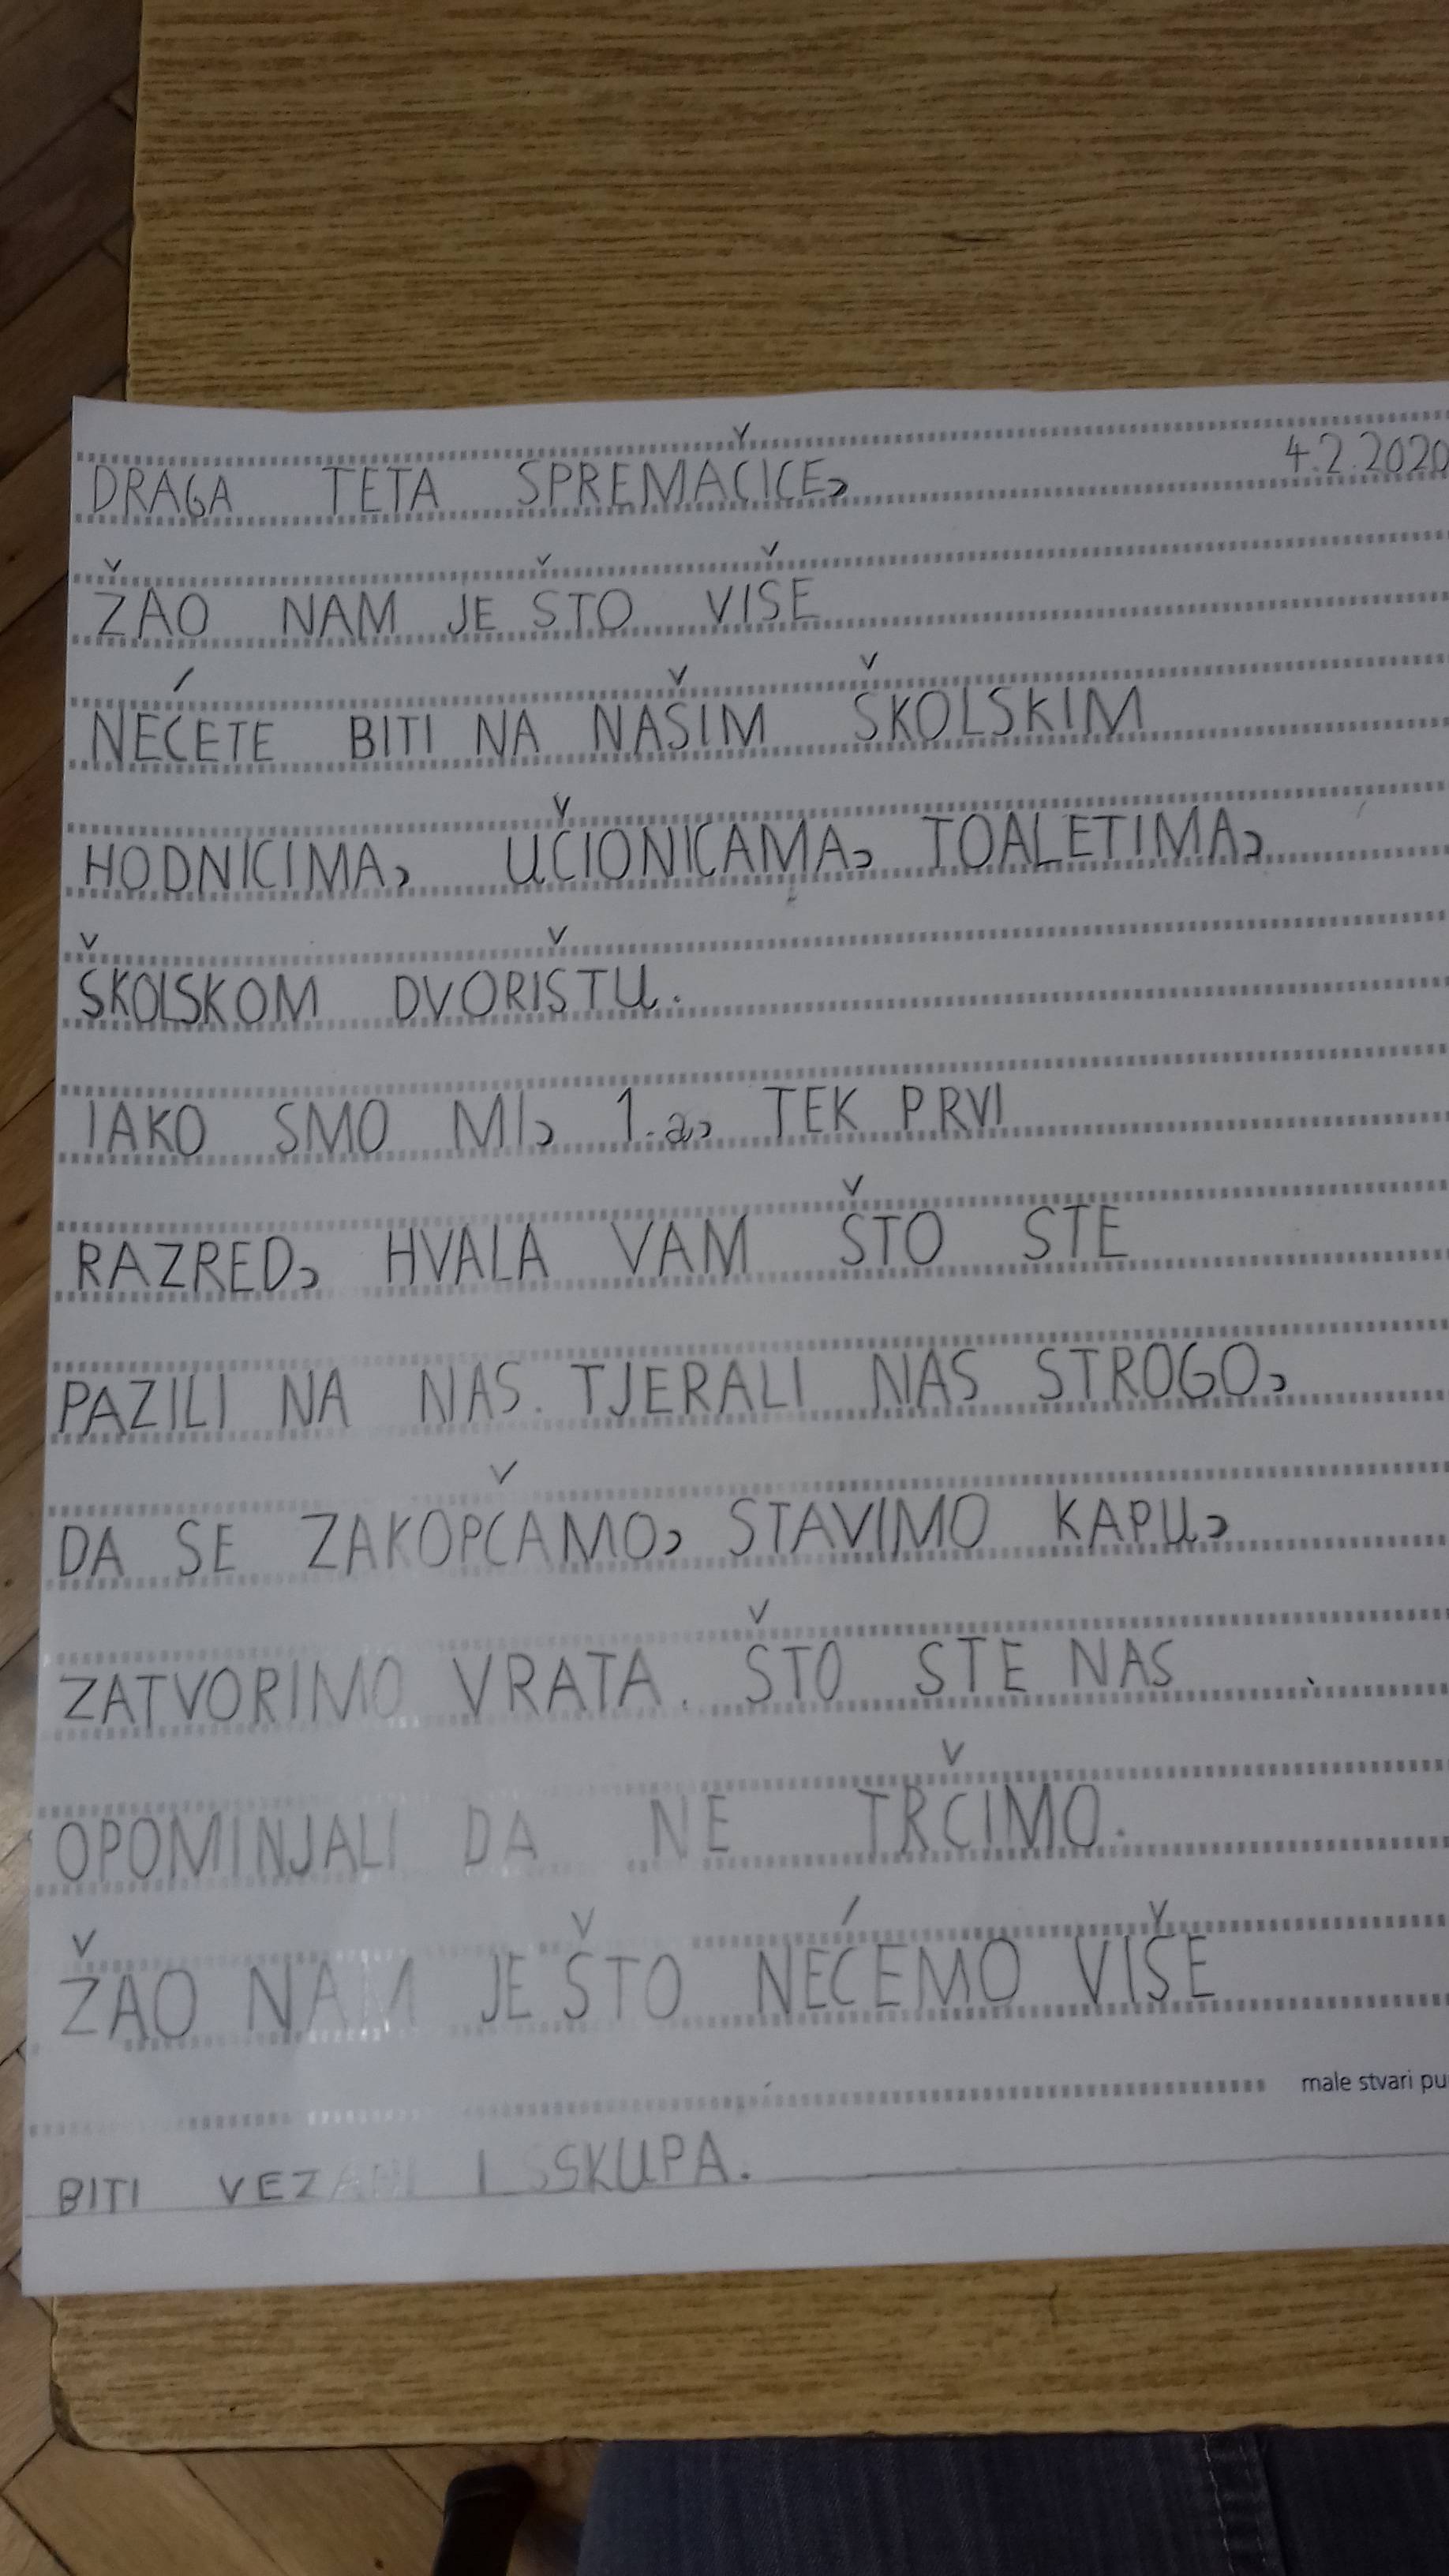 4.2.2020
DRAGA TETA SPREMAČICE,
ŽAO NAM JE ŠTO VIŠE
NEĆETE BITI NA NAŠIM ŠKOLSKIM
HODNICIMA, UČIONICAMA, TOALETIMA,
ŠKOLSKOM DVORIŠTU.
IAKO SMO MI, 1.a, TEK PRVI
RAZRED, HVALA VAM ŠTO STE
PAZILI NA NAS. TJERALI NAS STROGO,
DA SE ZAKOPČAMO, STAVIMO KAPU,
ZATVORIMO VRATA. ŠTO STE NAS
OPOMINJALI DA NE TRČIMO.
ŽAO NAM JE ŠTO NEĆEMO VIŠE
male stvari
BITI VEZANI I SSKUPA.